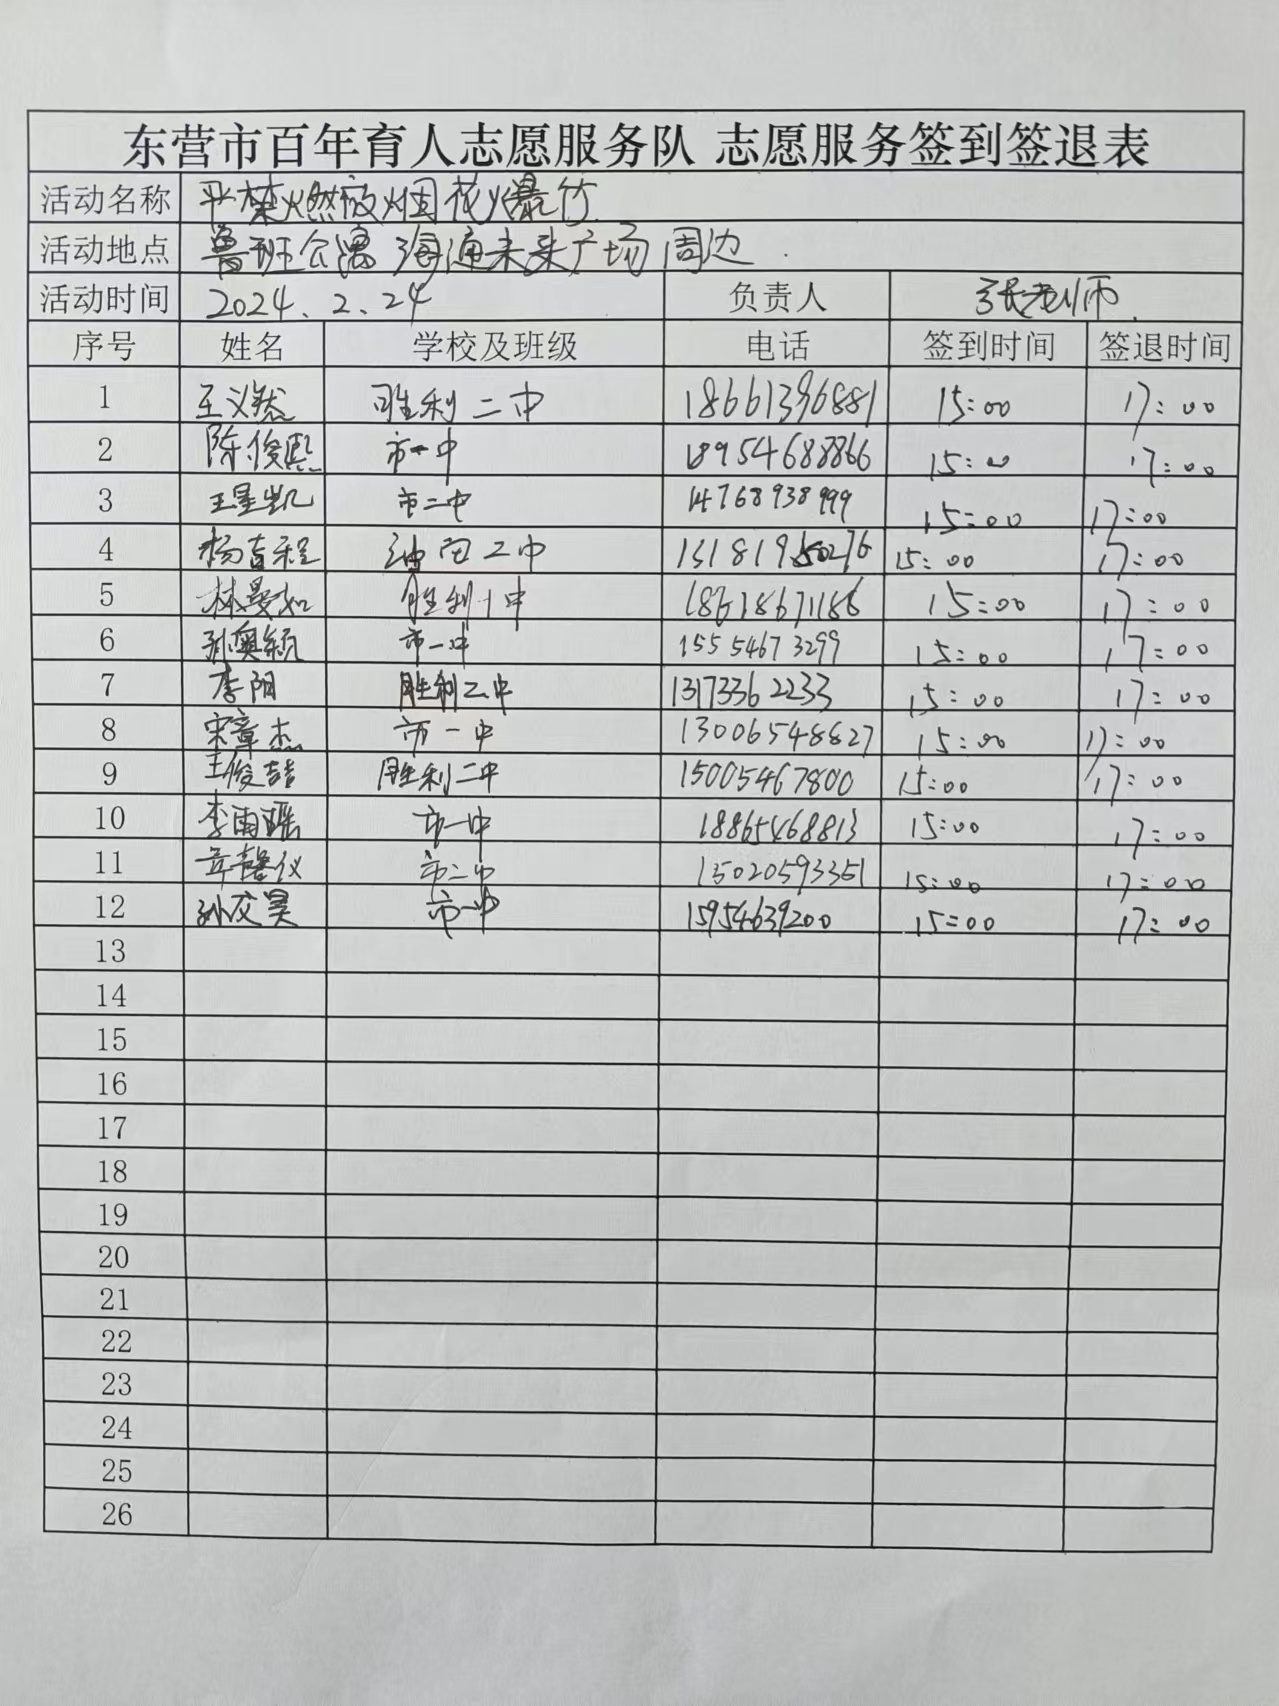 东营市百年育人志愿服务队 志愿服务签到签退表
活动名称 严禁燃放烟花爆竹
活动地点 鲁班公寓 海通未来广场 周边
活动时间 2024.2.24 负责人 张老师
序号 姓名 学校及班级 电话 签到时间 签退时间
1 王义然 胜利二中 18661396881 15:00 17:00
2 陈俊熙 市一中 18954688866 15:00 17:00
3 王星凯 市二中 14768938999 15:00 17:00
4 杨吉程 油田二中 15:00 17:00
5 林曼如 胜利一中 18678671186 15:00 17:00
6 孙奥颖 市一中 15554673299 15:00 17:00
7 李阳 胜利二中 13173362233 15:00 17:00
8 宋章杰 市一中 13006548827 15:00 17:00
9 王俊喆 胜利二中 15005467800 15:00 17:00
10 李雨瑶 市一中 18865468813 15:00 17:00
11 市二中 15020593351 15:00 17:00
12 市一中 15954639200 15:00 17:00
13
14
15
16
17
18
19
20
21
22
23
24
25
26